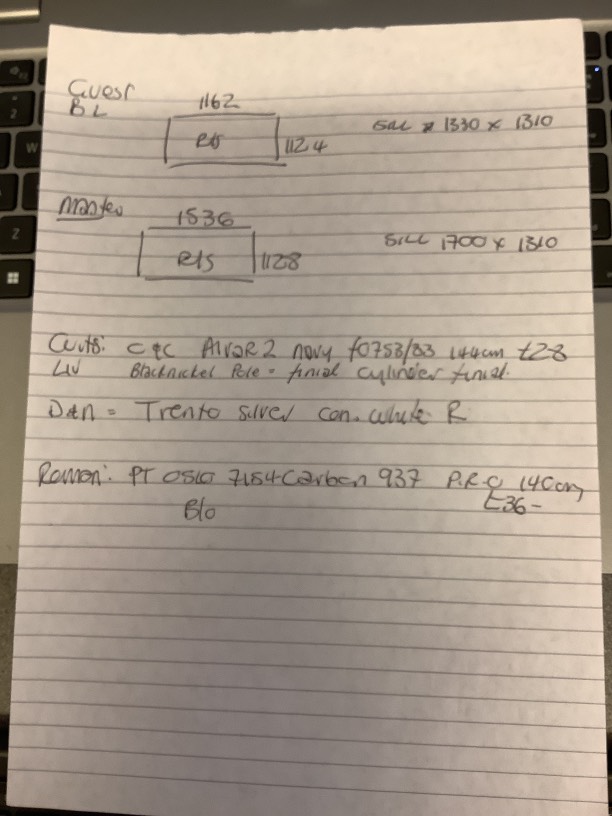 Guest
BL
1162
R/S 1124
Sill x 1330 x 1310
Master
1536
R/S 1128
Sill 1700 x 1310
C&C Alvar 2 navy f0753/03 144cm £28
Blacknickel Pole = finial cylinder finial.
D&N = Trento silver con. white R
Roman: PT Oslo 7154 Carbon 937 P.R.O 140cm
£36-
B/o